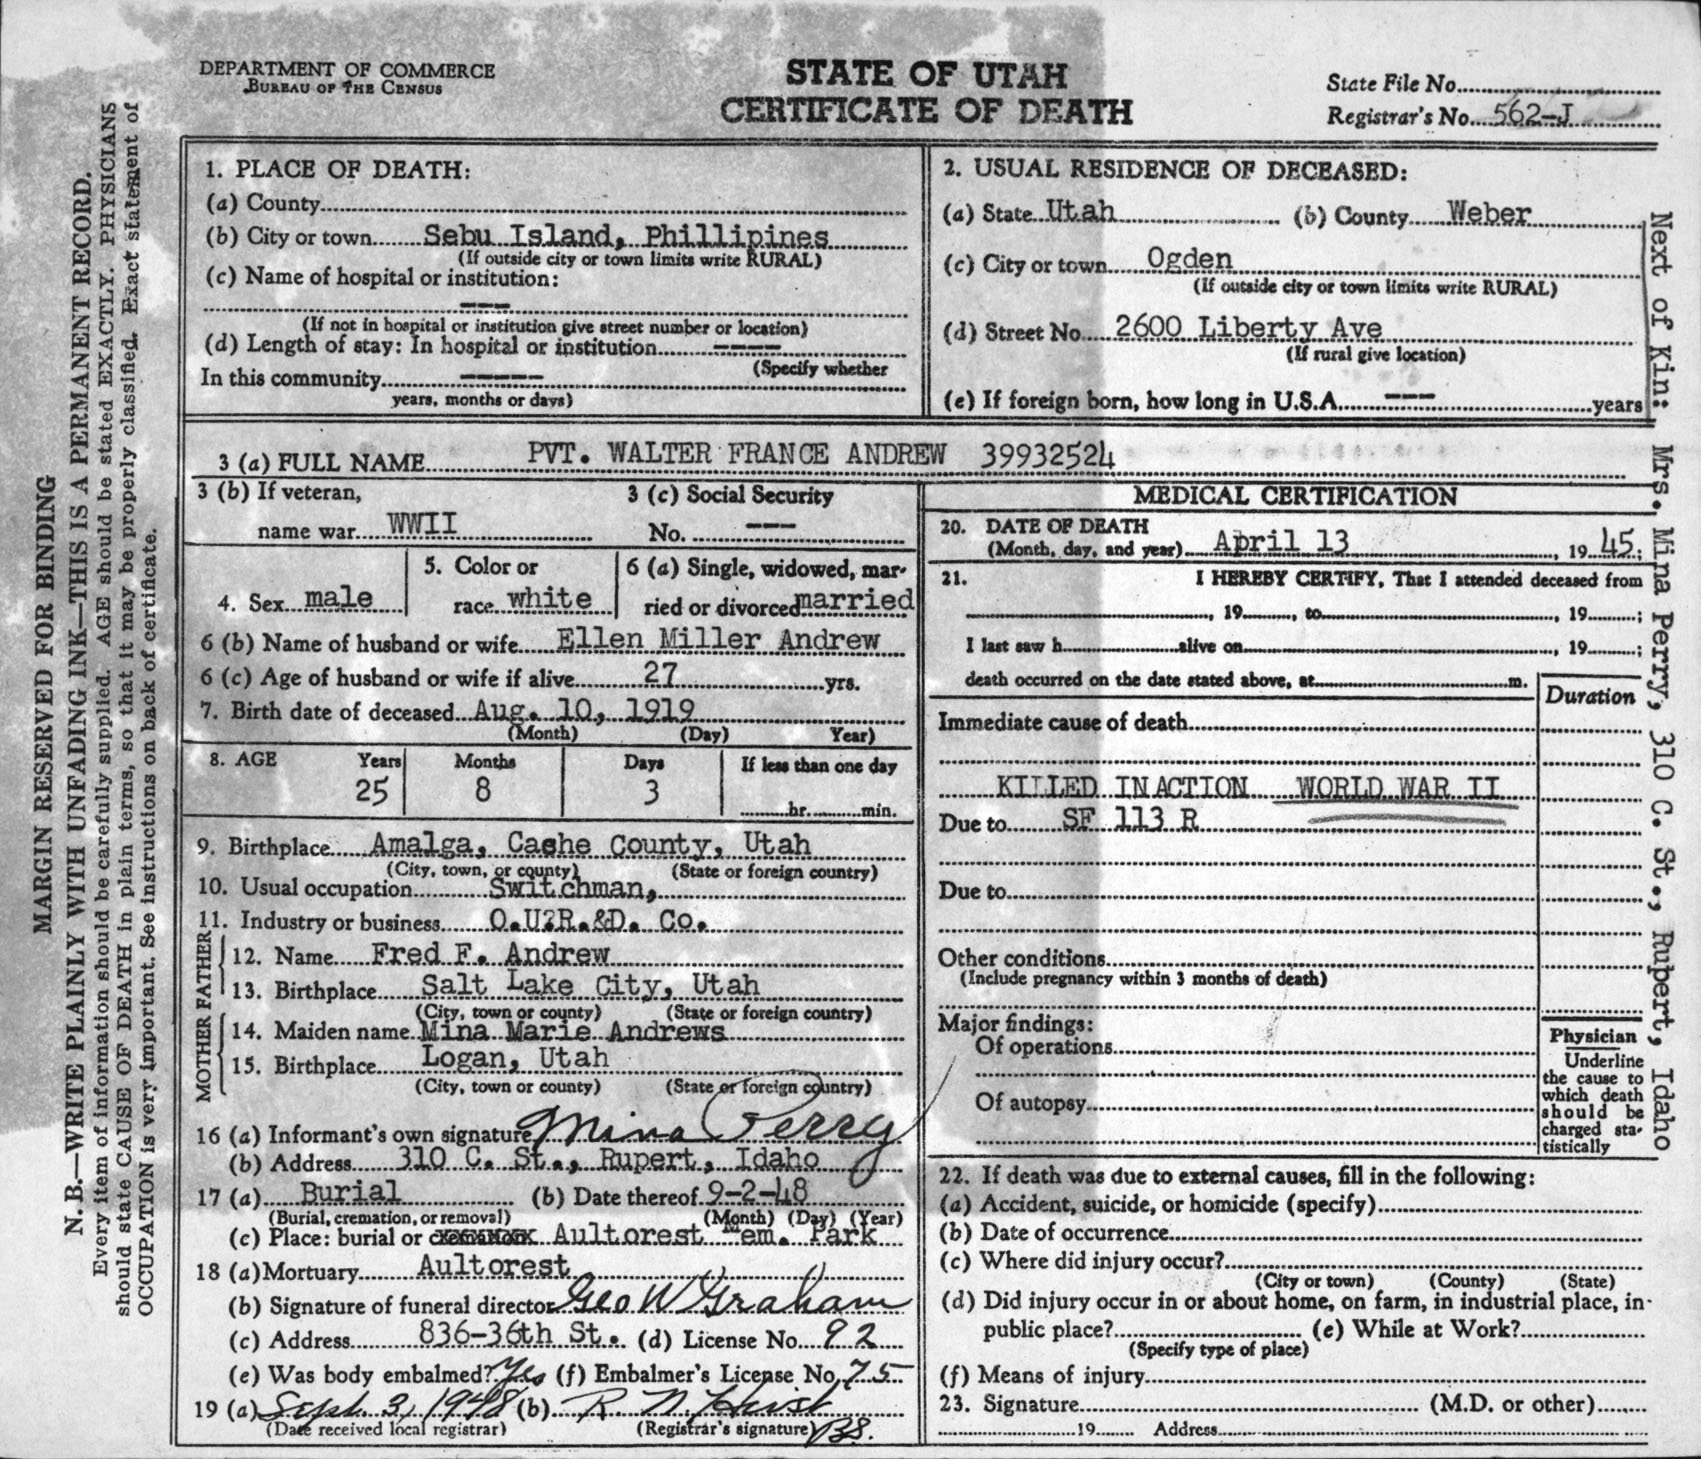 DEPARTMENT OF COMMERCE
BUREAU OF THE CENSUS
STATE OF UTAH
CERTIFICATE OF DEATH
State File No.
Registrar's No. 562-J
MARGIN RESERVED FOR BINDING
N. B.—WRITE PLAINLY WITH UNFADING INK—THIS IS A PERMANENT RECORD.
Every item of information should be carefully supplied. AGE should be stated EXACTLY. PHYSICIANS
should state CAUSE OF DEATH in plain terms, so that it may be properly classified. Exact statement of
OCCUPATION is very important. See instructions on back of certificate.
1. PLACE OF DEATH:
(a) County
(b) City or town Sebu Island, Phillipines
(If outside city or town limits write RURAL)
(c) Name of hospital or institution:
---
(If not in hospital or institution give street number or location)
(d) Length of stay: In hospital or institution ----
(Specify whether
In this community -----
years, months or days)
2. USUAL RESIDENCE OF DECEASED:
(a) State Utah (b) County Weber
(c) City or town Ogden
(If outside city or town limits write RURAL)
(d) Street No. 2600 Liberty Ave
(If rural give location)
(e) If foreign born, how long in U.S.A. --- years
3 (a) FULL NAME PVT. WALTER FRANCE ANDREW 39932524
3 (b) If veteran,
name war WWII
3 (c) Social Security
No. ---
4. Sex male
5. Color or
race white
6 (a) Single, widowed, mar-
ried or divorced married
6 (b) Name of husband or wife Ellen Miller Andrew
6 (c) Age of husband or wife if alive 27 yrs.
7. Birth date of deceased Aug. 10, 1919
(Month) (Day) Year)
8. AGE Years Months Days If less than one day
25 8 3 hr. min.
9. Birthplace Amalga, Cache County, Utah
(City, town, or county) (State or foreign country)
10. Usual occupation Switchman,
11. Industry or business O.U.R.&D. Co.
FATHER
12. Name Fred F. Andrew
13. Birthplace Salt Lake City, Utah
(City, town or county) (State or foreign country)
MOTHER
14. Maiden name Mina Marie Andrews
15. Birthplace Logan, Utah
(City, town or county) (State or foreign country)
16 (a) Informant's own signature Mina Perry
(b) Address 310 C. St., Rupert, Idaho
17 (a) Burial (b) Date thereof 9-2-48
(Burial, cremation, or removal) (Month) (Day) (Year)
(c) Place: burial or cremation Aultorest Mem. Park
18 (a) Mortuary Aultorest
(b) Signature of funeral director Geo W Graham
(c) Address 836-36th St. (d) License No. 92
(e) Was body embalmed? Yes (f) Embalmer's License No. 75
19 (a) Sept. 3, 1948 (b) R N Hirst
(Date received local registrar) (Registrar's signature) BS.
MEDICAL CERTIFICATION
20. DATE OF DEATH
(Month, day, and year) April 13, 19 45;
21. I HEREBY CERTIFY, That I attended deceased from
, 19 , to , 19 ;
I last saw h alive on , 19 ;
death occurred on the date stated above, at m.
Duration
Immediate cause of death
KILLED IN ACTION WORLD WAR II
Due to SF 113 R
Due to
Other conditions
(Include pregnancy within 3 months of death)
Major findings:
Of operations
Of autopsy
Physician
Underline
the cause to
which death
should be
charged sta-
tistically
22. If death was due to external causes, fill in the following:
(a) Accident, suicide, or homicide (specify)
(b) Date of occurrence
(c) Where did injury occur?
(City or town) (County) (State)
(d) Did injury occur in or about home, on farm, in industrial place, in-
public place? (e) While at Work?
(Specify type of place)
(f) Means of injury
23. Signature (M.D. or other)
19 Address
Next of Kin: Mrs. Mina Perry, 310 C. St., Rupert, Idaho